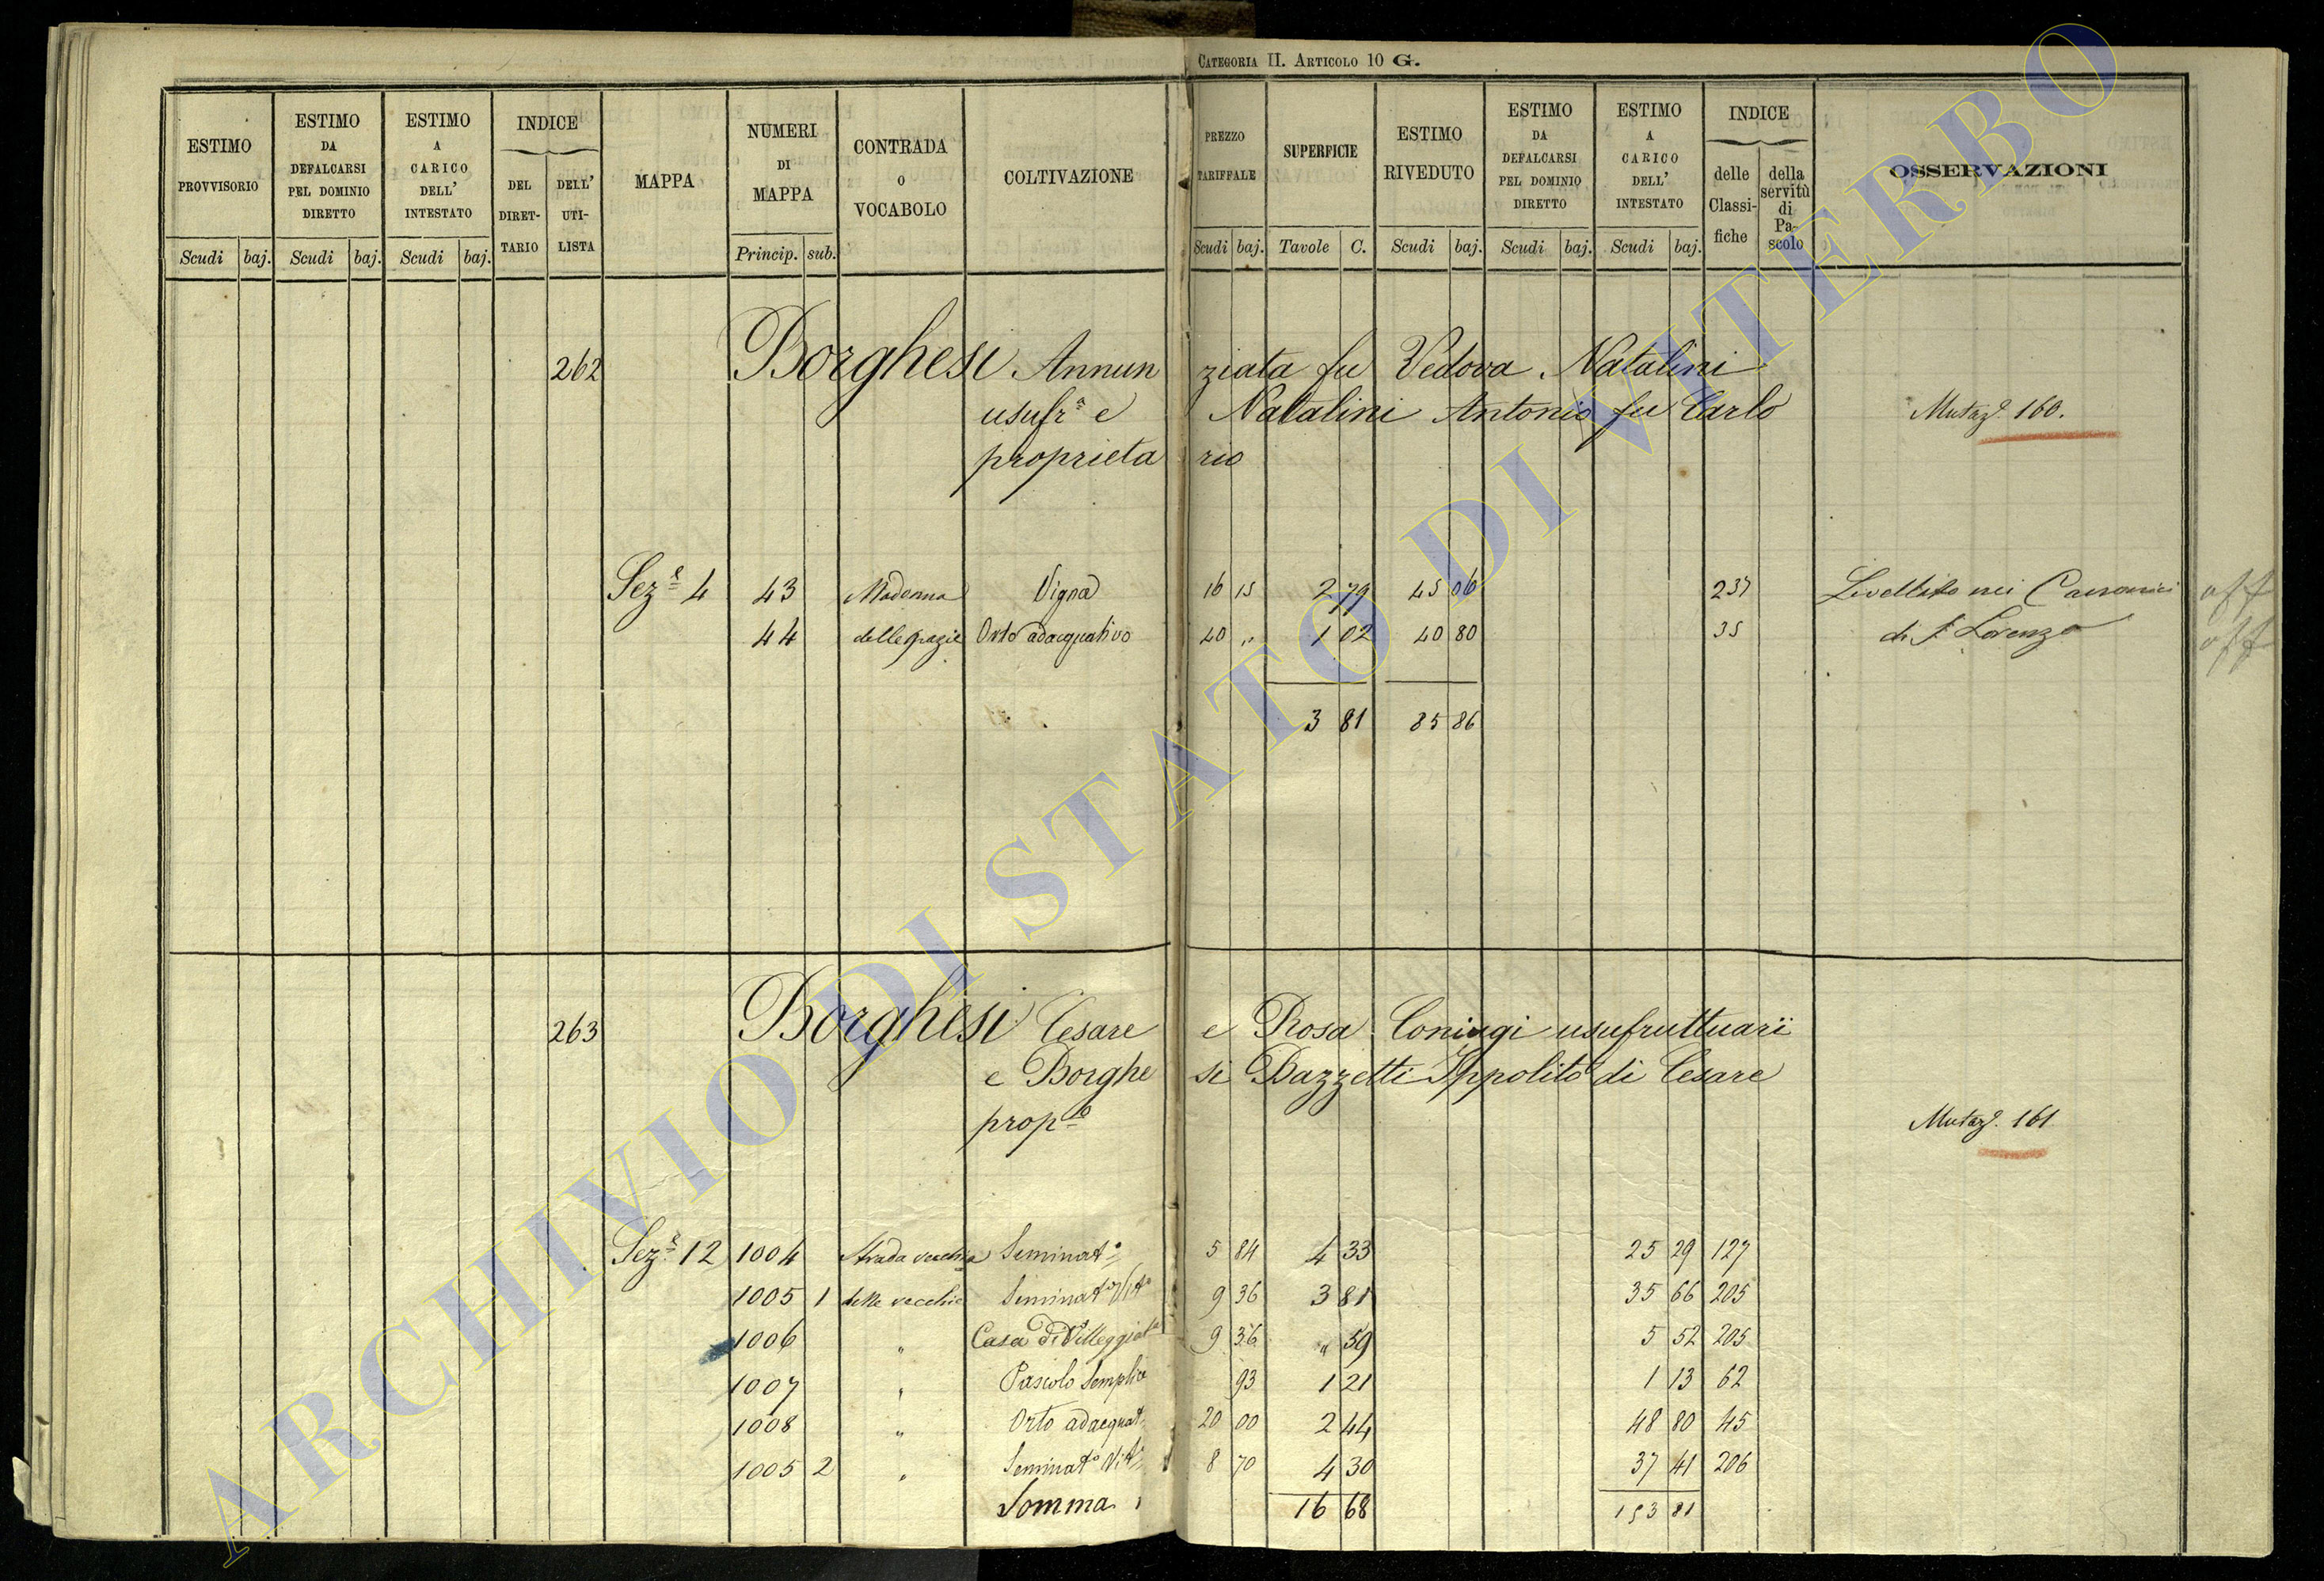 CATEGORIA II. ARTICOLO 10 G.
ESTIMO PROVVISORIO
ESTIMO DA DEFALCARSI PEL DOMINIO DIRETTO
ESTIMO A CARICO DELL' INTESTATO
INDICE
DEL DIRET-TARIO
DELL' UTI-LISTA
MAPPA
NUMERI DI MAPPA
CONTRADA O VOCABOLO
COLTIVAZIONE
PREZZO TARIFFALE
SUPERFICIE
ESTIMO RIVEDUTO
ESTIMO DA DEFALCARSI PEL DOMINIO DIRETTO
ESTIMO A CARICO DELL' INTESTATO
INDICE
delle Classi-fiche
della servitù di Pa-scolo
OSSERVAZIONI
Scudi baj. Scudi baj. Scudi baj. Princip. sub. Scudi baj. Tavole C. Scudi baj. Scudi baj. Scudi baj.
262 Borghesi Annun ziata fu Vedova Natalini
usufr.ª e Natalini Antonio fu Carlo Mutaz.e 160.
proprieta rio
Sez.e 4 43 Madonna Vigna 16 15 2 79 45 06 237 Livellito nei Canonici aff
44 delle grazie Orto adacquativo 40 " 1 02 40 80 35 di S. Lorenzo aff
3 81 85 86
263 Borghesi Cesare e Rosa Coniugi usufruttuarii
e Borghe si Bazzetti Ippolito di Cesare
prop.io Mutaz.e 161
Sez.e 12 1004 Strada vecchia Seminat.o 5 84 4 33 25 29 127
1005 1 delle vecchie Seminat.o Vit.o 9 36 3 81 35 66 205
1006 " Casa di Villeggiat.a 9 36 " 59 5 52 205
1007 " Pascolo Semplice 93 1 21 1 13 62
1008 " Orto adacquat. 20 00 2 44 48 80 45
1005 2 " Seminat.o Vit.o 8 70 4 30 37 41 206
Somma 16 68 153 81
ARCHIVIO DI STATO DI VITERBO